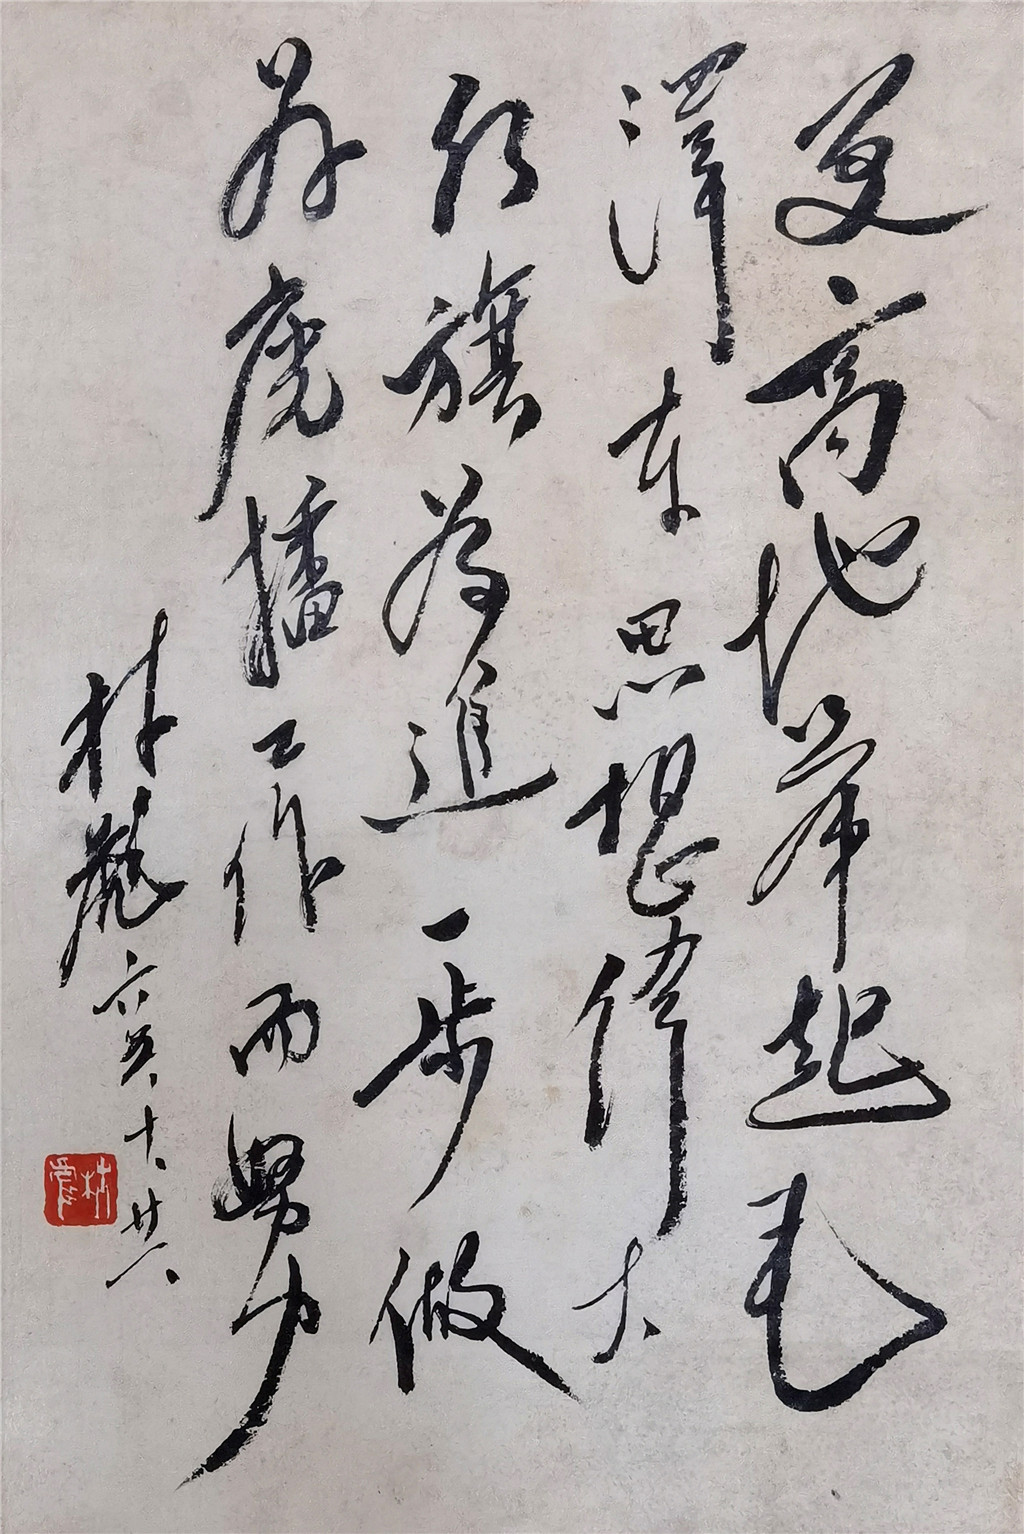 更高地举起毛
澤东思想偉大
红旗为進一步做
好廣播工作而努力
林彪 六五、十、廿一、
林彪